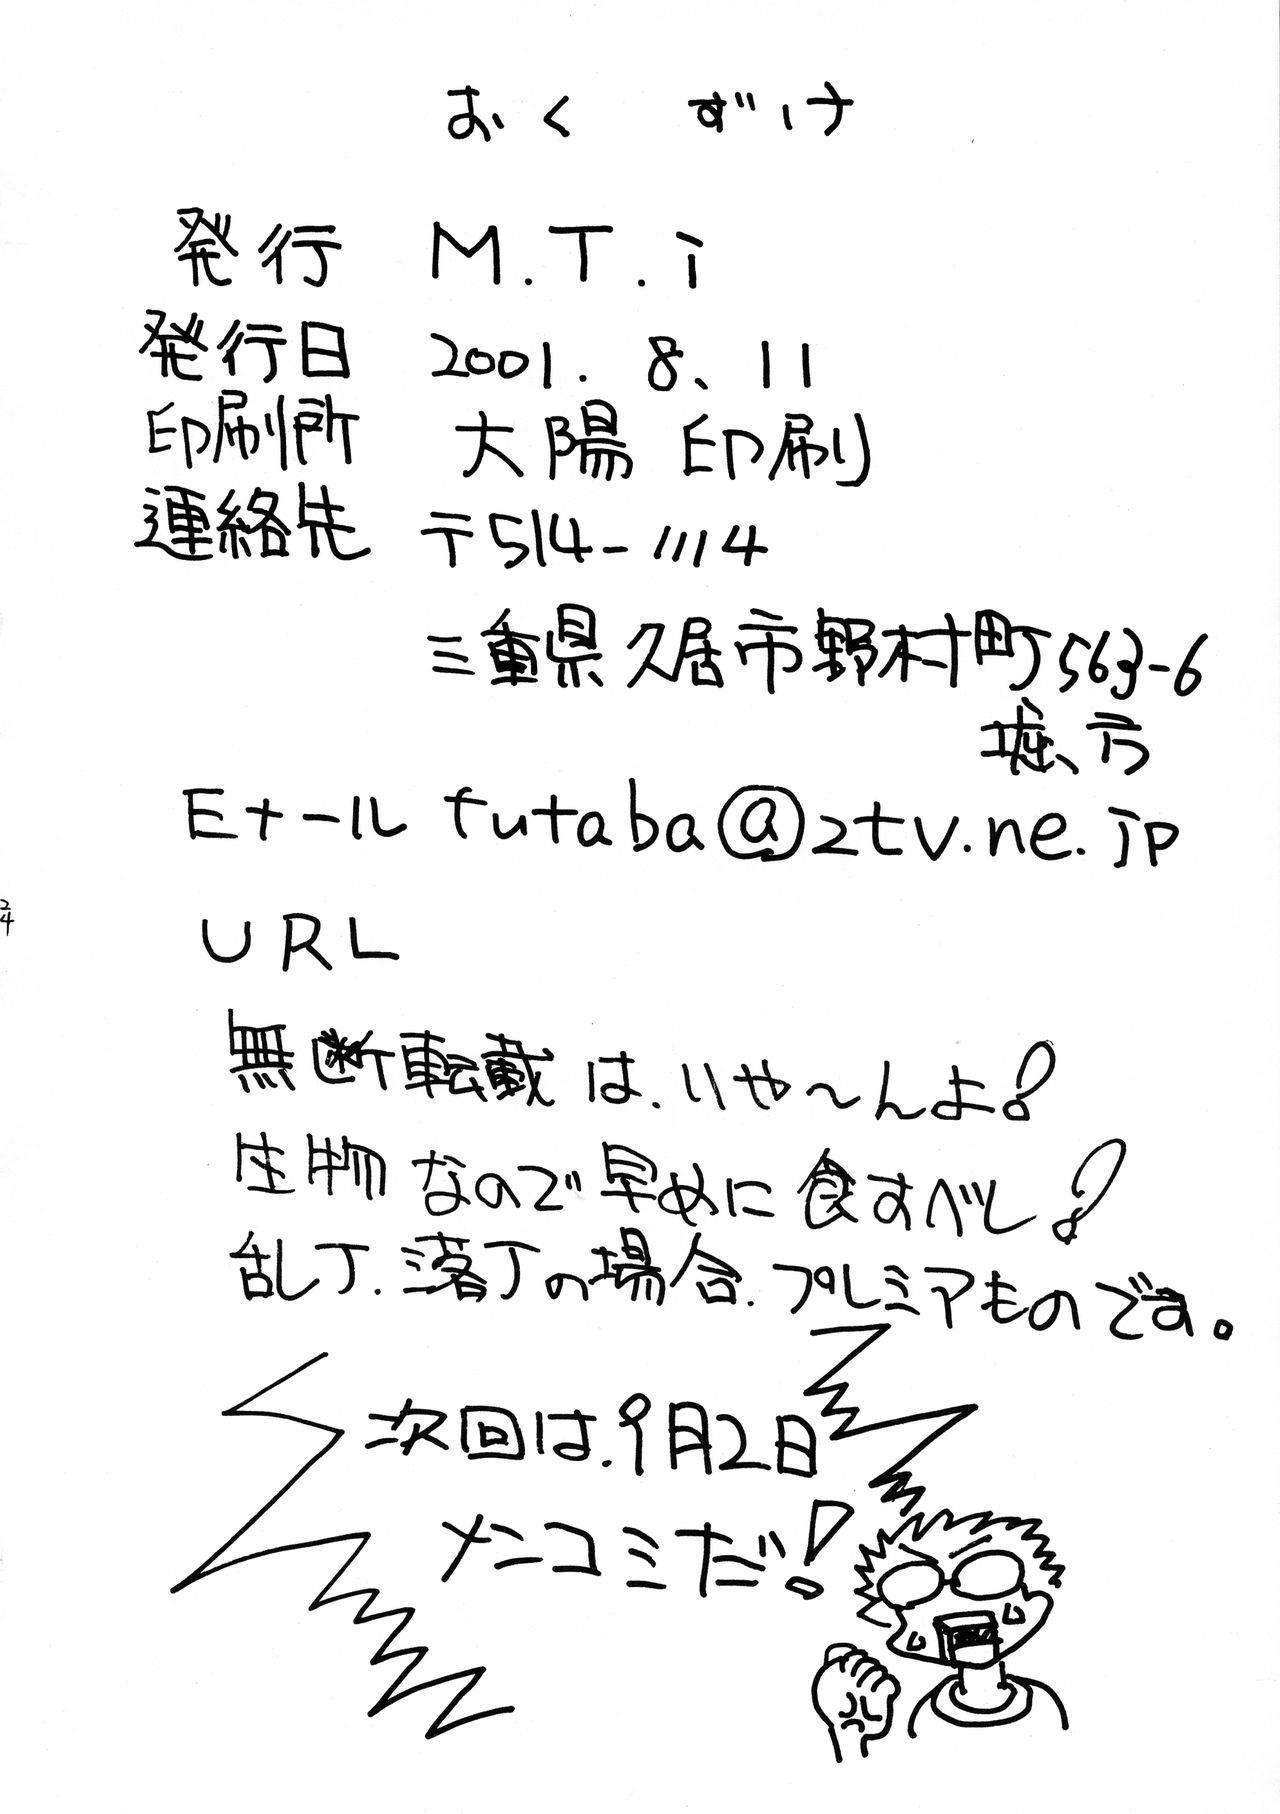 おくずけ
発行 M.T.i
発行日 2001.8、11
印刷所 大陽印刷
連絡先 〒514-1114
三重県久居市野村町563-6
堀、方
Eメール futaba@ztv.ne.jp
URL
無断転載は.いや〜んよ!
生物なので早めに食すべし!
乱丁.落丁の場合.プレミアものです。
次回は.9月2日
メンコミだ!
24